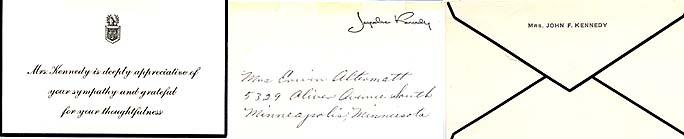 Mrs. Kennedy is deeply appreciative of
your sympathy and grateful
for your thoughtfulness
Jacqueline Kennedy
Mrs Erwin Altermatt
5329 Oliver Avenue South
Minneapolis, Minnesota
MRS. JOHN F. KENNEDY